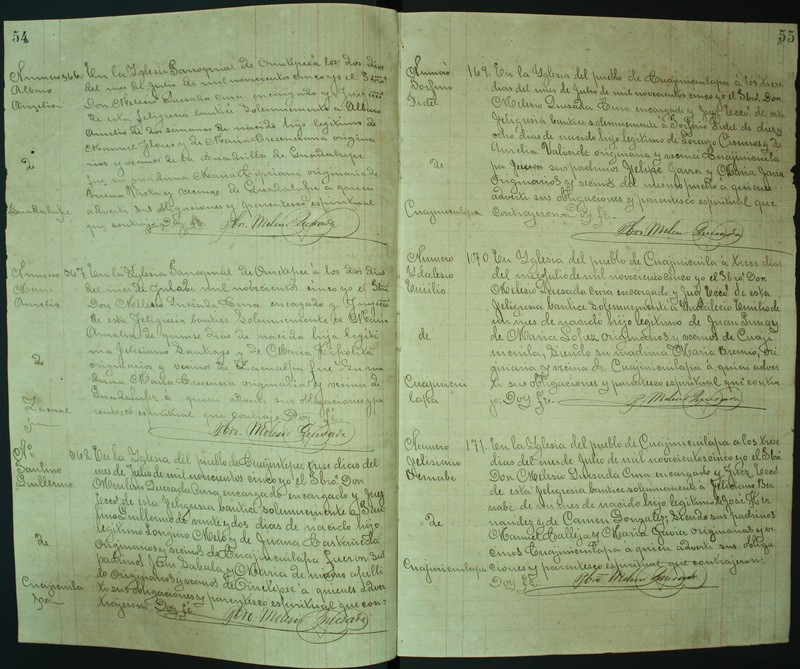 54
Numero 366. En la Yglesia Parroquial de Ometepec á los dos dias
Albano del mes de Julio de mil novecientos cinco yo el Sbro.
Aurelio Don Melesio Quesada Cura encargado y Juez
de esta feligresia bautice solemnemente a Albano
Aurelio de dos semanas de nacido hijo legitimo de
Manuel Flores y de Maria Crecenciana origina
rios y vecinos de la Cuadrilla de Guadalupe
de fue su madrina Maria Cipriana originaria de
Buena Vista y vecina de Guadalupe á quien
adverti sus obligaciones y parentesco espiritual
Guadalupe que contrajo. Doy fé. Pbro. Melesio Quesada
Numero 367. En la Yglesia Parroquial de Ometepec á los dos dias
Maria del mes de Julio de mil novecientos cinco yo el Sbro.
Amelia Don Melesio Quesada Cura encargado y Juez
de esta Feligresia bautice solemnemente á Maria
Amalia de quince dias de nacida hija legiti
ma Feliciano Santiago y de Maria Hipolita
de originarios y vecinos de fue su ma
drina Maria Cresencia originaria y vecina de
Guadalupe á quien adverti sus obligaciones y pa
rentesco espiritual que contrajo Doy fé.
Pbro. Melesio Quesada
No. 368. En la Yglesia del pueblo de Cuajintepec trese dias del
Santino mes de Julio de mil novecientos cinco yo el Sbro. Don
Guillermo Melesio Quesada Cura encargado encargado y Juez
Ecco. de esta Feligresia bautice solemnemente a San
tino Guillermo de veinte y dos dias de nacido hijo
legitimo Longino Melo y de Juana Castañeda
de Originarios y vecinos de Cuajinicuilapa fueron sus
padrinos Jose Zabala y Maria de mismo apelli
do Originarios y vecinos de Ometepec a quienes adver
Cuajinicuila ti sus obligaciones y parentesco espiritual que con=
pa trajeron. Doy fé. Pbro. Melesio Quesada
55
Numero 169. En la Yglesia del pueblo de Cuajinicuilapa á los trese
Porfirio dias del mes de Julio de mil novecientos cinco yo el Sbro. Don
Fidel Melesio Quesada Cura encargado y Juez Ecco. de esta
Feligresia bautice solemnemente á Porfirio Fidel de diez y
ocho dias de nacido hijo legitimo de Lorenzo Cisneros y de
Amelia Valverde originaria y vecina Cuajinicuila
de pa fueron sus padrinos Felipe Garcia y Maria Garcia
Originarios y vecinos del mesmo pueblo á quienes
adverti sus obligaciones y parentesco espiritual que
Cuajinicuilapa contrajeron Doy fé.
Pbro. Melesio Quesada
Numero 170 En Yglesia del pueblo de Cuajinicuila á trese dias
Ydalesio del mes Julio de mil novecientos cinco yo el Sbro. Don
Emilio Melesio Quesada Cura encargado y Juez Ecco. de esta
Feligresia bautice solemnemente á Yndalecio Emilio de
un mes de nacido hijo legitimo de Juan
de de Maria Lopez Originarios y vecinos de Cuaji
nicuila, siendo su madrina Maria Bruno, Ori
ginaria y vecina de Cuajinicuilapa á quien adver
Cuajinicui ti sus obligaciones y parentesco espiritual que contra
lapa jo. Doy fé. P. Melesio Quesada
Numero 171. En la Yglesia del pueblo de Cuajinicuilapa a los trese
Felissiano dias del mes de Junio de mil novecientos cinco yo el Sbro.
Bernabe Don Melesio Quesada Cura encargado y Juez Ecco
de esta feligresia bautice solemnemente á Feliciano Ber
nabe de un mes de nacido hijo legitimo de José Her
nandez y de Carmen Gonzalez; siendo sus padrinos
de Manuel Calleja y Maria Javier originarias y ve
cinos Cuajinicuilapa a quien adverti sus obliga
Cuajinicuilapa ciones y parentesco espiritual que contrajeron.
Doy fé. Pbro. Melesio Quesada